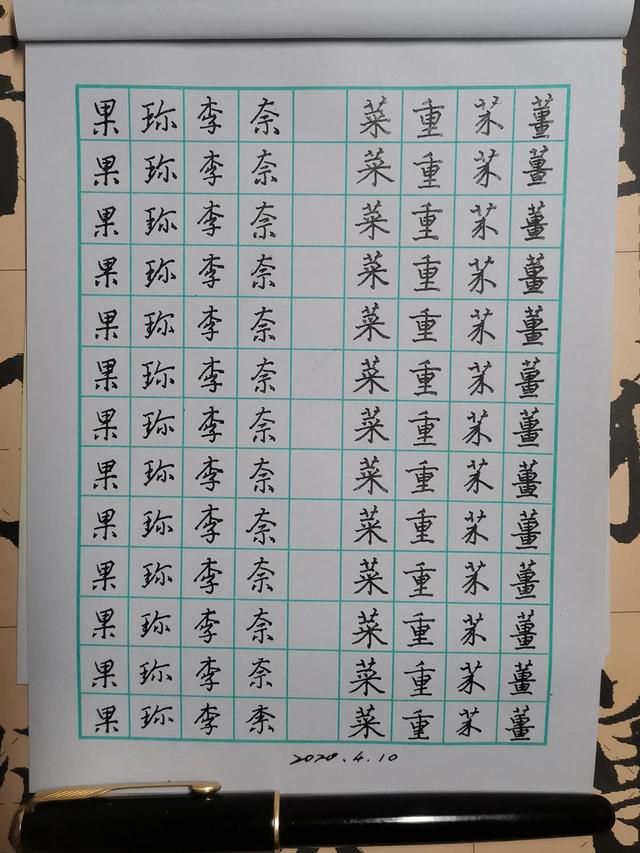 果 珎 李 奈 菜 重 芥 薑
果 珎 李 奈 菜 重 芥 薑
果 珎 李 奈 菜 重 芥 薑
果 珎 李 奈 菜 重 芥 薑
果 珎 李 奈 菜 重 芥 薑
果 珎 李 奈 菜 重 芥 薑
果 珎 李 奈 菜 重 芥 薑
果 珎 李 奈 菜 重 芥 薑
果 珎 李 奈 菜 重 芥 薑
果 珎 李 奈 菜 重 芥 薑
果 珎 李 奈 菜 重 芥 薑
果 珎 李 奈 菜 重 芥 薑
果 珎 李 柰 菜 重 芥 薑
2020.4.10